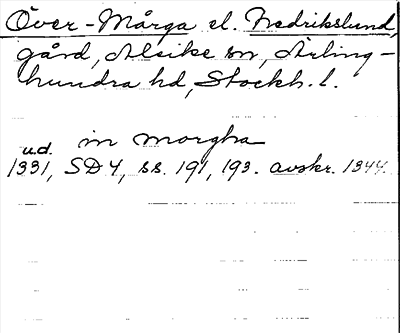 Över-Mårga el. Fredrikslund,
gård, Alsike sn, Ärling-
hundra hd, Stockh. l.
u.d. in morgha
1331, SD4, ss. 191, 193. avskr. 1344.